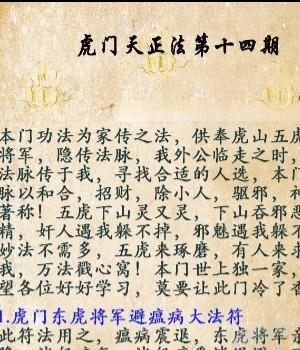 虎门天正法第十四期
本门功法为家传之法，供奉虎山五虎
将军，隐传法脉，我外公临走之时，
法脉传于我，寻找合适的人选，本门
脉以和合，招财，除小人，驱邪，补
著称！五虎下山灵又灵，下山吞邪恶
精，奸人遇我躲不掉，邪魅遇我躲
妙法不需多，五虎来琢磨，有人来求
我，万法戳心窝！本门世上独一家，
望各位好好学习，莫要让此门冷了香
1.虎门东虎将军避瘟病大法符
此符法用之，瘟病震退，东虎将军